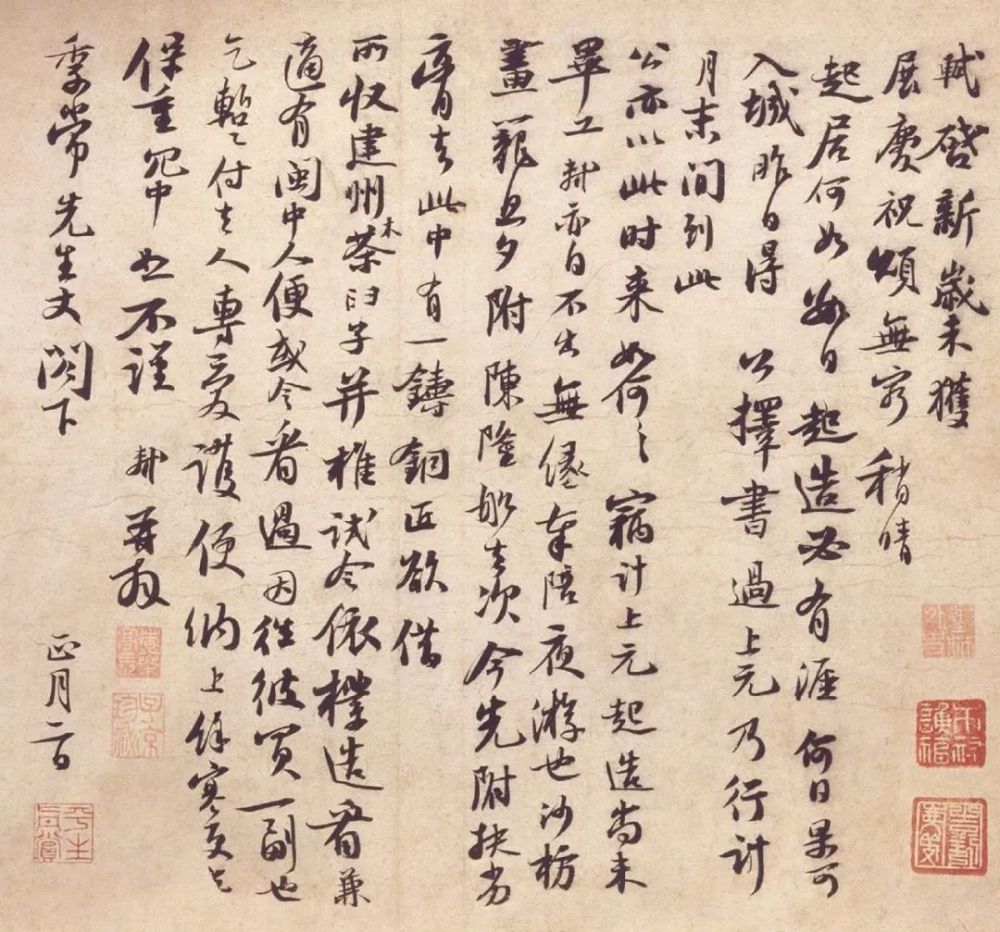 軾啓新歲未獲
展慶祝頌無窮稍晴
起居何如數日起造必有涯何日果可
入城昨日得公擇書過上元乃行計
月末間到此
公亦以此時来如何〻竊計上元起造尚未
畢工軾亦自不出無緣奉陪夜游也沙枋
畫籠旦夕附陳隆船去次今先附扶劣
膏去此中有一鑄銅匠欲借
所收建州木茶臼子并椎試令依樣造看兼
適有閩中人便或令看過因往彼買一副也
乞暫〻付去人專爱護便納上餘寒更乞
保重冗中恕不謹軾再拜
季常先生丈閤下
正月二日